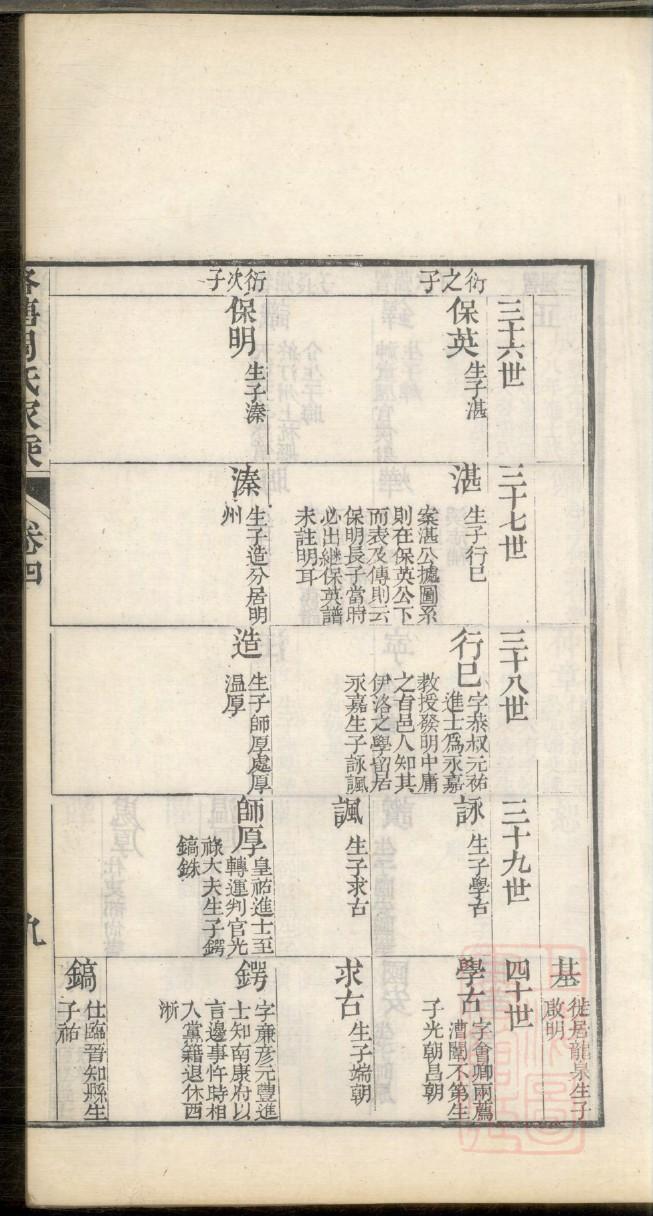 基
徙居龍泉生子
啟明
三十六世
三十七世
三十八世
三十九世
四十世
衍之子
保英
生子湛
湛
生子行巳
案湛公據圖系
則在保英公下
而表及傳則云
保明長子當時
必出繼保英譜
未註明耳
行巳
字恭叔元祐
進士爲永嘉
教授發明中庸
之旨邑人知其
伊洛之學留居
永嘉生子詠諷
詠
生子學古
學古
字會卿兩薦
漕闈不第生
子光朝昌朝
諷
生子求古
求古
生子端朝
衍次子
保明
生子溱
溱
生子造分居明
州
造
生子師厚處厚
温厚
師厚
皇祐進士至
轉運判官光
祿大夫生子鍔
鎬銖
鍔
字廉彦元豐進
士知南康府以
言邊事忤時相
入黨籍退休西
浙
鎬
仕臨晉知縣生
子祐
周氏家乘
卷四
九